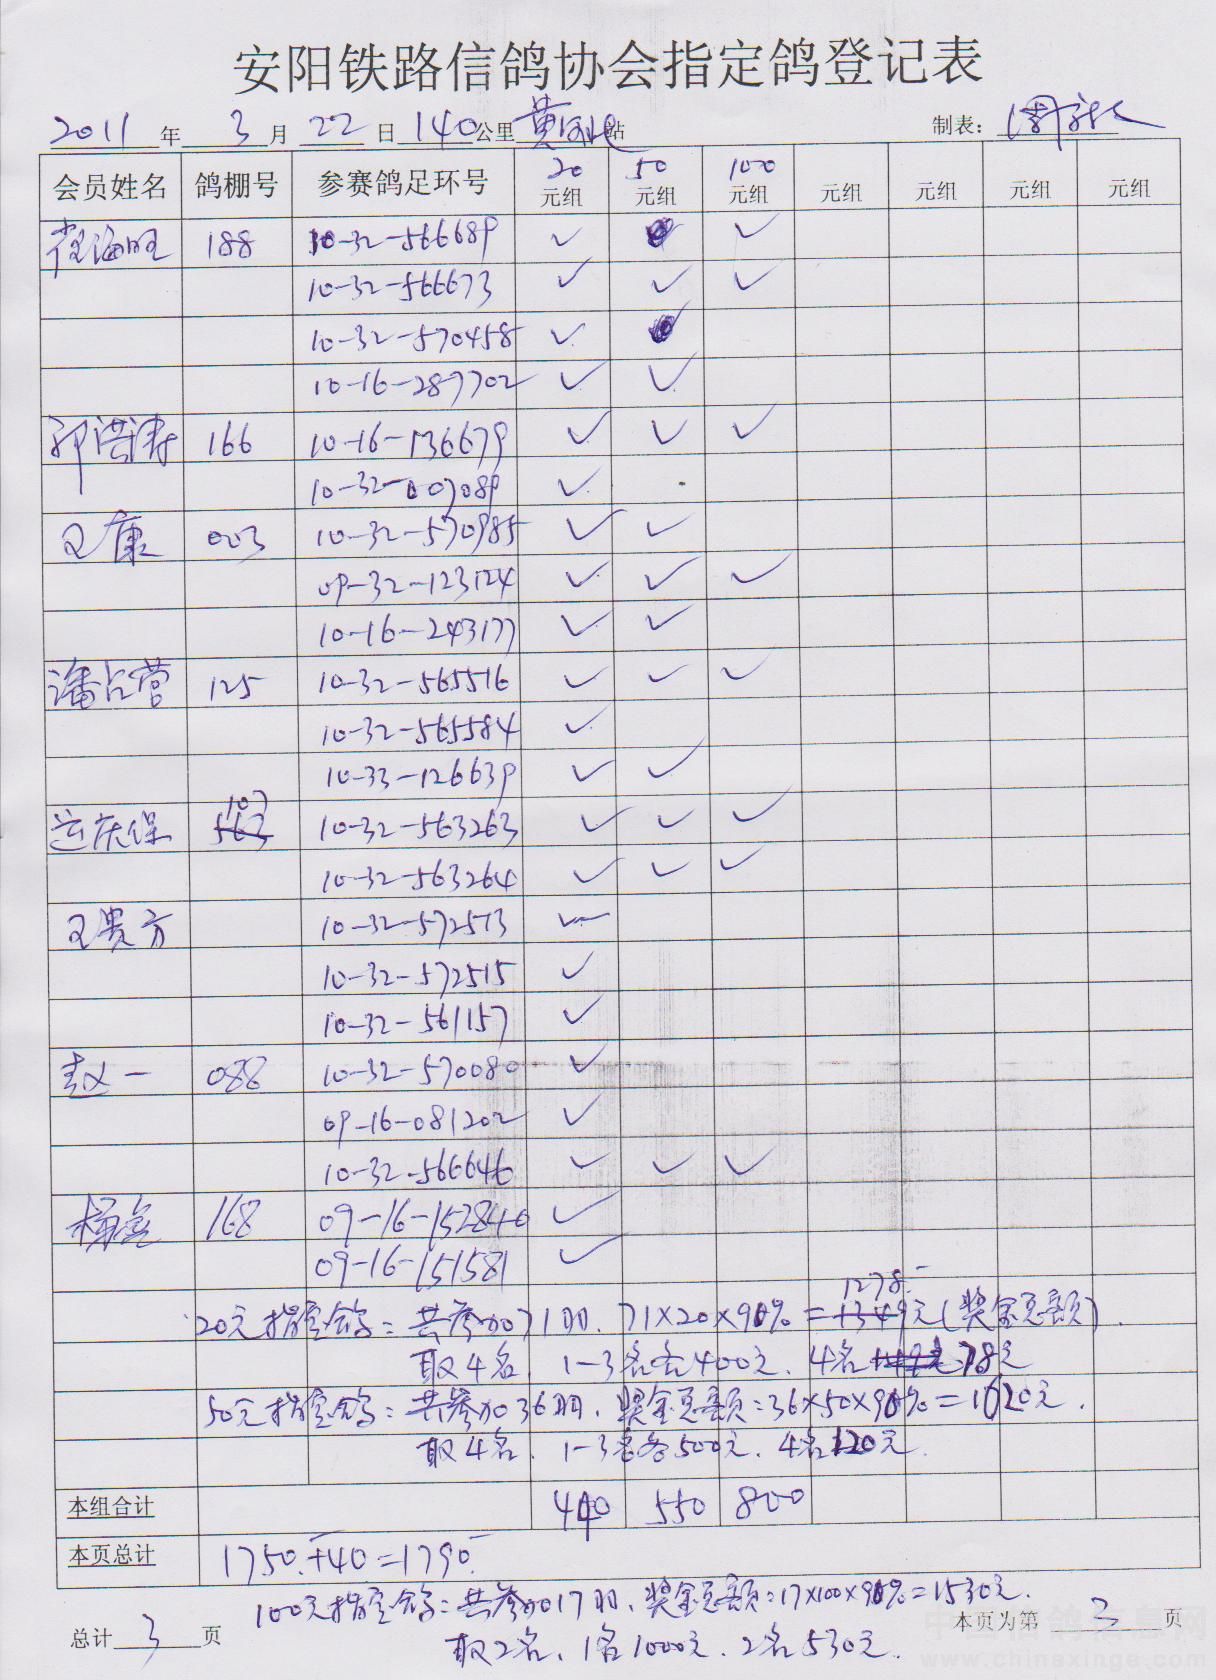 安阳铁路信鸽协会指定鸽登记表
2011年 3月 22日 140公里 黄河北站 制表：
会员姓名 鸽棚号 参赛鸽足环号 20元组 50元组 100元组 元组 元组 元组 元组
188 10-32-566689 ✓ ✓
10-32-566673 ✓ ✓ ✓
10-32-570458 ✓
10-16-287702 ✓ ✓
郭洪涛 166 10-16-136679 ✓ ✓ ✓
10-32-007089 ✓
王康 003 10-32-570985 ✓ ✓
09-32-123124 ✓ ✓ ✓
10-16-243177 ✓ ✓
潘占营 125 10-32-565516 ✓ ✓ ✓
10-32-565584 ✓
10-33-126639 ✓ ✓
运庆保 107 563 10-32-563263 ✓ ✓ ✓
10-32-563264 ✓ ✓ ✓
王贵方 10-32-572513 ✓
10-32-572515 ✓
10-32-561157 ✓
赵一 088 10-32-570080 ✓
09-16-081202 ✓
10-32-566646 ✓ ✓ ✓
168 09-16-152840 ✓
09-16-151581 ✓
1278.-
20元指定鸽：共参加71羽. 71×20×90%=1349元(奖金总额).
取4名. 1-3名各400元. 4名78元
50元指定鸽：共参加36羽. 奖金总额：36×50×90%=1620元.
取4名. 1-3名各500元. 4名120元.
本组合计 440 550 800
本页总计 1750.-+40=1790.-
100元指定鸽：共参加17羽. 奖金总额：17×100×90%=1530元.
总计 3 页 本页为第 3 页
取2名. 1名1000元. 2名530元.
中国信鸽信息网
www.chinaxinge.com